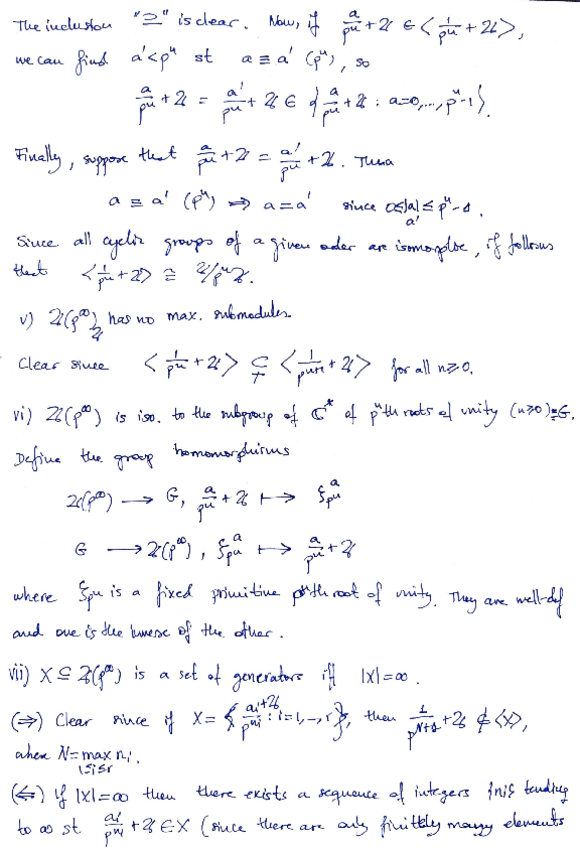 The inclusion "⊇" is clear. Now, if a/pⁿ + ℤ ∈ < 1/pⁿ + ℤ >,
we can find a' < pⁿ st a ≡ a' (pⁿ), so
a/pⁿ + ℤ = a'/pⁿ + ℤ ∈ { a/pⁿ + ℤ : a=0,...,pⁿ-1 }.
Finally, suppose that a/pⁿ + ℤ = a'/pⁿ + ℤ. Then
a ≡ a' (pⁿ) ⇒ a = a' since 0≤|a|≤pⁿ-1.
a'
Since all cyclic groups of a given order are isomorphic, it follows
that < 1/pⁿ + ℤ > ≅ ℤ/pⁿℤ.
v) ℤ(p^∞)_ℤ has no max. submodules.
Clear since < 1/pⁿ + ℤ > ⊊ < 1/pⁿ⁺¹ + ℤ > for all n≥0.
vi) ℤ(p^∞) is iso. to the subgroup of ℂ* of pⁿth roots of unity (n≥0) ≡ G.
Define the group homomorphisms
ℤ(p^∞) → G, a/pⁿ + ℤ ↦ ξ_{pⁿ}^a
G → ℤ(p^∞), ξ_{pⁿ}^a ↦ a/pⁿ + ℤ
where ξ_{pⁿ} is a fixed primitive pⁿth root of unity. They are well-def
and one is the inverse of the other.
vii) X ⊆ ℤ(p^∞) is a set of generators iff |X|=∞.
(⇒) Clear since if X = { aᵢ/p^{nᵢ} + ℤ : i=1,-,r }, then 1/p^{N+1} + ℤ ∉ <X>,
where N = max nᵢ.
1≤i≤r
(⇐) If |X|=∞ then there exists a sequence of integers {nᵢ} tending
to ∞ st aᵢ/p^{nᵢ} + ℤ ∈ X (since there are only finitely many elements